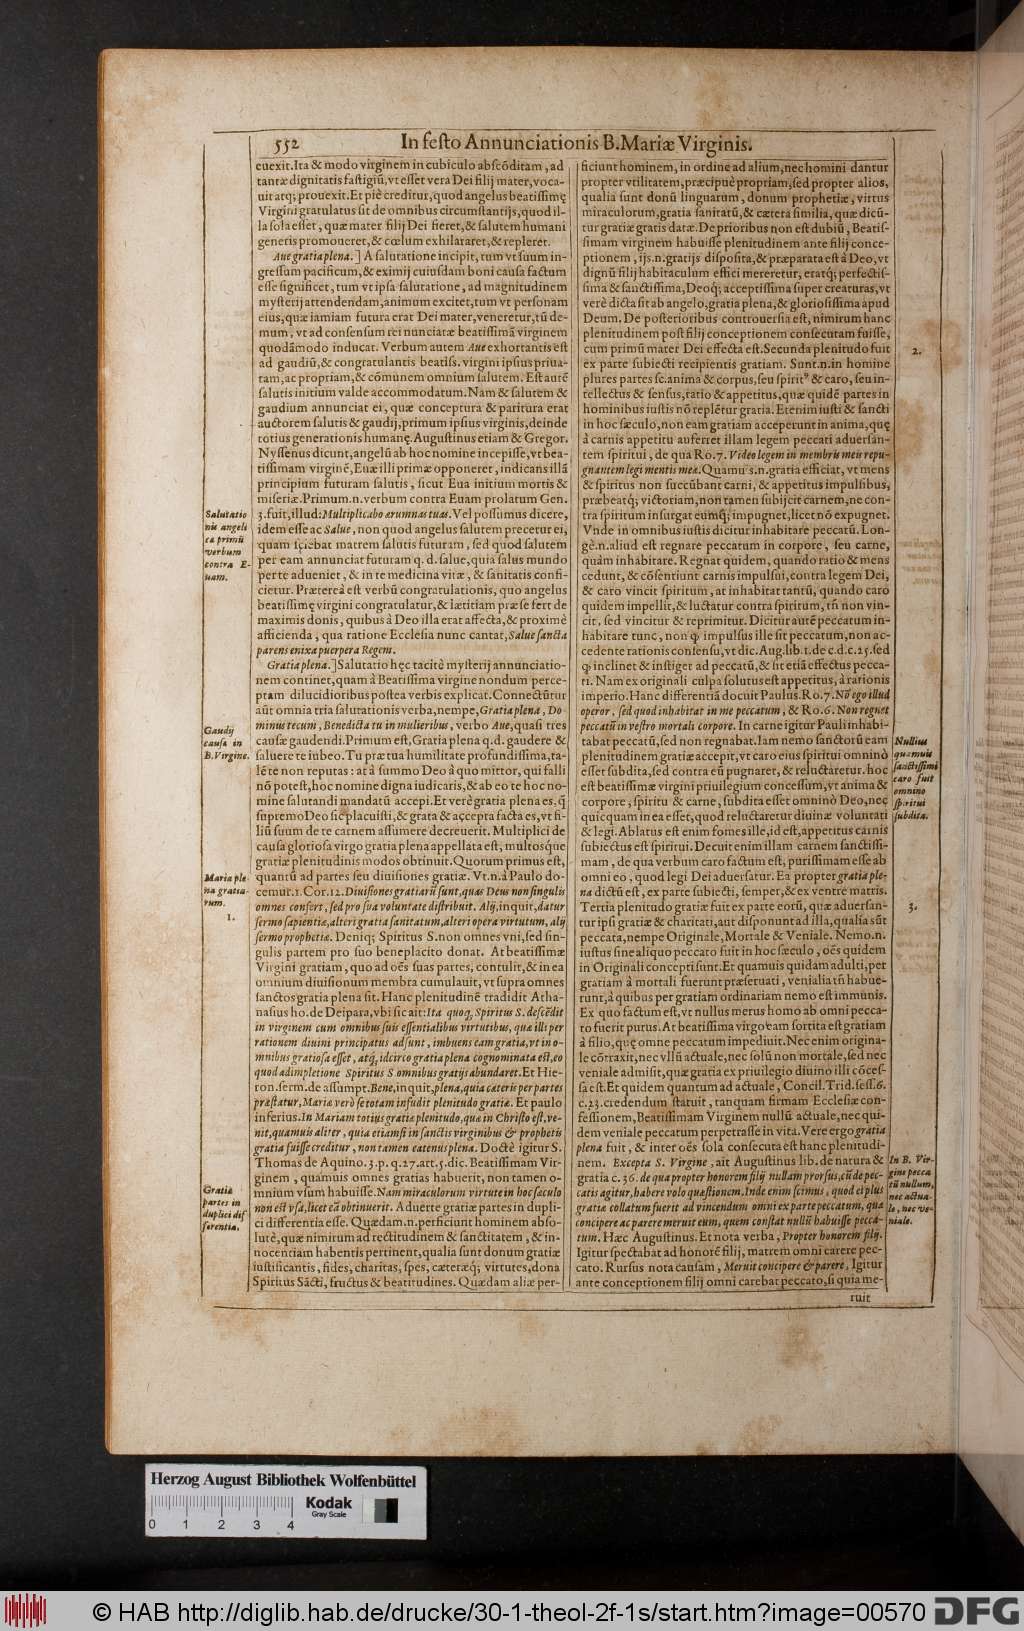 552 In festo Annunciationis B. Mariæ Virginis.
euexit. Ita & modo virginem in cubiculo abscōditam, ad
tantæ dignitatis fastigiū, vt esset vera Dei filij mater, voca-
uit atq; prouexit. Et piè creditur, quod angelus beatissimę
Virgini gratulatus sit de omnibus circumstantijs, quod il-
la sola esset, quæ mater filij Dei fieret, & salutem humani
generis promoueret, & cœlum exhilararet, & repleret.
Aue gratia plena.] A salutatione incipit, tum vt suum in-
gressum pacificum, & eximij cuiusdam boni causa factum
esse significet, tum vt ipsa salutatione, ad magnitudinem
mysterij attendendam, animum excitet, tum vt personam
eius, quæ iamiam futura erat Dei mater, veneretur, tū de-
mum, vt ad consensum rei nunciatæ beatissimā virginem
quodāmodo inducat. Verbum autem Aue exhortantis est
ad gaudiū, & congratulantis beatiss. virgini ipsius priua-
tam, ac propriam, & cōmunem omnium salutem. Est autē
salutis initium valde accommodatum. Nam & salutem &
gaudium annunciat ei, quæ conceptura & paritura erat
auctorem salutis & gaudij, primum ipsius virginis, deinde
totius generationis humanę. Augustinus etiam & Gregor.
Nyssenus dicunt, angelū ab hoc nomine incepisse, vt bea-
tissimam virginē, Euæ illi primæ opponeret, indicans illā
principium futuram salutis, sicut Eua initium mortis &
miseriæ. Primum.n. verbum contra Euam prolatum Gen.
3. fuit, illud: Multiplicabo ærumnas tuas. Vel possumus dicere,
idem esse ac Salue, non quod angelus salutem precetur ei,
quam sciebat matrem salutis futuram, sed quod salutem
per eam annunciat futuram q. d. salue, quia salus mundo
per te adueniet, & in te medicina vitæ, & sanitatis confi-
cietur. Præterea est verbū congratulationis, quo angelus
beatissimę virgini congratulatur, & lætitiam præ se fert de
maximis donis, quibus à Deo illa erat affecta, & proximè
afficienda, qua ratione Ecclesia nunc cantat, Salue sancta
parens enixa puerpera Regem.
Gratia plena.] Salutatio hęc tacitè mysterij annunciatio-
nem continet, quam à Beatissima virgine nondum perce-
ptam dilucidioribus postea verbis explicat. Connectūtur
aūt omnia tria salutationis verba, nempe, Gratia plena, Do-
minus tecum, Benedicta tu in mulieribus, verbo Aue, quasi tres
causæ gaudendi. Primum est, Gratia plena q. d. gaudere &
saluere te iubeo. Tu præ tua humilitate profundissima, ta-
lē te non reputas: at à summo Deo à quo mittor, qui falli
nō potest, hoc nomine digna iudicaris, & ab eo te hoc no-
mine salutandi mandatū accepi. Et verè gratia plena es. q̄
supremo Deo sic placuisti, & grata & accepta facta es, vt fi-
liū suum de te carnem assumere decreuerit. Multiplici de
causa gloriosa virgo gratia plena appellata est, multosque
gratiæ plenitudinis modos obtinuit. Quorum primus est,
quantū ad partes seu diuisiones gratiæ. Vt.n. à Paulo do-
cemur. 1. Cor. 12. Diuisiones gratiarū sunt, quas Deus non singulis
omnes confert, sed pro sua voluntate distribuit. Alij, inquit, datur
sermo sapientiæ, alteri gratia sanitatum, alteri opera virtutum, alij
sermo prophetiæ. Deniq; Spiritus S. non omnes vni, sed sin-
gulis partem pro suo beneplacito donat. At beatissimæ
Virgini gratiam, quo ad oēs suas partes, contulit, & in ea
omnium diuisionum membra cumulauit, vt supra omnes
sanctos gratia plena sit. Hanc plenitudinē tradidit Atha-
nasius ho. de Deipara, vbi sic ait: Ita quoq, Spiritus S. descēdit
in virginem cum omnibus suis essentialibus virtutibus, quæ illi per
rationem diuini principatus adsunt, imbuens eam gratia, vt in o-
mnibus gratiosa esset, atq, idcirco gratia plena cognominata est, eo
quod adimpletione Spiritus S. omnibus gratijs abundaret. Et Hie-
ron. serm. de assumpt. Bene, inquit, plena, quia cæteris per partes
præstatur, Mariæ verò se totam infudit plenitudo gratiæ. Et paulo
inferius. In Mariam totius gratiæ plenitudo, quæ in Christo est, ve-
nit, quamuis aliter, quia etiamsi in sanctis virginibus & prophetis
gratia fuisse creditur, non tamen eatenus plena. Doctè igitur S.
Thomas de Aquino. 3. p. q. 27. art. 5. dic. Beatissimam Vir-
ginem, quamuis omnes gratias habuerit, non tamen o-
mnium vsum habuisse. Nam miraculorum virtute in hoc sæculo
non est vsa, licet eā obtinuerit. Aduerte gratiæ partes in dupli-
ci differentia esse. Quædam.n. perficiunt hominem abso-
lutè, quæ nimirum ad rectitudinem & sanctitatem, & in-
nocentiam habentis pertinent, qualia sunt donum gratiæ
iustificantis, fides, charitas, spes, cæteræq; virtutes, dona
Spiritus Sācti, fructus & beatitudines. Quædam aliæ per-
Salutatio
nis angeli
ca primū
verbum
contra E-
uam.
Gaudij
causa in
B. Virgine.
Maria ple-
na gratia-
rum.
1.
Gratiæ
partes in
duplici dif
ferentia.
ficiunt hominem, in ordine ad alium, nec homini dantur
propter vtilitatem, præcipuè propriam, sed propter alios,
qualia sunt donū linguarum, donum prophetiæ, virtus
miraculorum, gratia sanitatū, & cætera similia, quæ dicū-
tur gratiæ gratis datæ. De prioribus non est dubiū, Beatis-
simam virginem habuisse plenitudinem ante filij conce-
ptionem, ijs.n. gratijs disposita, & præparata est à Deo, vt
dignū filij habitaculum effici mereretur, eratq; perfectis-
sima & sanctissima, Deoq; acceptissima super creaturas, vt
verè dicta sit ab angelo, gratia plena, & gloriosissima apud
Deum. De posterioribus controuersia est, nimirum hanc
plenitudinem post filij conceptionem consecutam fuisse,
cum primū mater Dei effecta est. Secunda plenitudo fuit
ex parte subiecti recipientis gratiam. Sunt.n. in homine
plures partes sc. anima & corpus, seu spiritꝰ & caro, seu in-
tellectus & sensus, ratio & appetitus, quæ quidē partes in
hominibus iustis nō replētur gratia. Etenim iusti & sancti
in hoc sæculo, non eam gratiam acceperunt in anima, quę
à carnis appetitu auferret illam legem peccati aduersan-
tem spiritui, de qua Ro. 7. Video legem in membris meis repu-
gnantem legi mentis meæ. Quamuis.n. gratia efficiat, vt mens
& spiritus non succūbant carni, & appetitus impulsibus,
præbeatq; victoriam, non tamen subijcit carnem, ne con-
tra spiritum insurgat eumq; impugnet, licet nō expugnet.
Vnde in omnibus iustis dicitur inhabitare peccatū. Lon-
gè.n. aliud est regnare peccatum in corpore, seu carne,
quàm inhabitare. Regnat quidem, quando ratio & mens
cedunt, & cōsentiunt carnis impulsui, contra legem Dei,
& caro vincit spiritum, at inhabitat tantū, quando caro
quidem impellit, & luctatur contra spiritum, tn̄ non vin-
cit, sed vincitur & reprimitur. Dicitur autē peccatum in-
habitare tunc, non q̇ impulsus ille sit peccatum, non ac-
cedente rationis consensu, vt dic. Aug. lib. 1. de c. d. c. 25. sed
q̇ inclinet & instiget ad peccatū, & sit etiā effectus pecca-
ti. Nam ex originali culpa solutus est appetitus, à rationis
imperio. Hanc differentiā docuit Paulus. Ro. 7. Nō ego illud
operor, sed quod inhabitat in me peccatum, & Ro. 6. Non regnet
peccatū in vestro mortali corpore. In carne igitur Pauli inhabi-
tabat peccatū, sed non regnabat. Iam nemo sanctorū eam
plenitudinem gratiæ accepit, vt caro eius spiritui omninò
esset subdita, sed contra eū pugnaret, & reluctaretur. hoc
est beatissimæ virgini priuilegium concessum, vt anima &
corpore, spiritu & carne, subdita esset omninò Deo, nec
quicquam in ea esset, quod reluctaretur diuinæ voluntati
& legi. Ablatus est enim fomes ille, id est, appetitus carnis
subiectus est spiritui. Decuit enim illam carnem sanctissi-
mam, de qua verbum caro factum est, purissimam esse ab
omni eo, quod legi Dei aduersatur. Ea propter gratia ple-
na dictū est, ex parte subiecti, semper, & ex ventre matris.
Tertia plenitudo gratiæ fuit ex parte eorū, quæ aduersan-
tur ipsi gratiæ & charitati, aut disponunt ad illa, qualia sūt
peccata, nempe Originale, Mortale & Veniale. Nemo.n.
iustus sine aliquo peccato fuit in hoc sæculo, oēs quidem
in Originali concepti sunt. Et quamuis quidam adulti, per
gratiam à mortali fuerunt præseruati, venialia tn̄ habue-
runt, à quibus per gratiam ordinariam nemo est immunis.
Ex quo factum est, vt nullus merus homo ab omni pecca-
to fuerit purus. At beatissima virgo eam sortita est gratiam
à filio, quę omne peccatum impediuit. Nec enim origina-
le cōtraxit, nec vllū actuale, nec solū non mortale, sed nec
veniale admisit, quæ gratia ex priuilegio diuino illi cōces-
sa est. Et quidem quantum ad actuale, Concil. Trid. sess. 6.
c. 23. credendum statuit, tanquam firmam Ecclesiæ con-
fessionem, Beatissimam Virginem nullū actuale, nec qui-
dem veniale peccatum perpetrasse in vita. Vere ergo gratia
plena fuit, & inter oēs sola consecuta est hanc plenitudi-
nem. Excepta S. Virgine, ait Augustinus lib. de natura &
gratia c. 36. de qua propter honorem filij nullam prorsus, cū de pec-
catis agitur, habere volo quæstionem. Inde enim scimus, quod ei plus
gratiæ collatum fuerit ad vincendum omni ex parte peccatum, quæ
concipere ac parere meruit eum, quem constat nullū habuisse pecca-
tum. Hæc Augustinus. Et nota verba, Propter honorem filij.
Igitur spectabat ad honorē filij, matrem omni carere pec-
cato. Rursus nota causam, Meruit concipere & parere, Igitur
ante conceptionem filij omni carebat peccato, si quia me-
ruit
2.
Nullius
quamuis
sanctissimi
caro fuit
omnino
spiritui
subdita.
3.
In B. Vir-
gine pecca
tū nullum,
nec actua-
le, nec ve-
niale.
Herzog August Bibliothek Wolfenbüttel
Kodak
Gray Scale
0 1 2 3 4
© HAB http://diglib.hab.de/drucke/30-1-theol-2f-1s/start.htm?image=00570 DFG